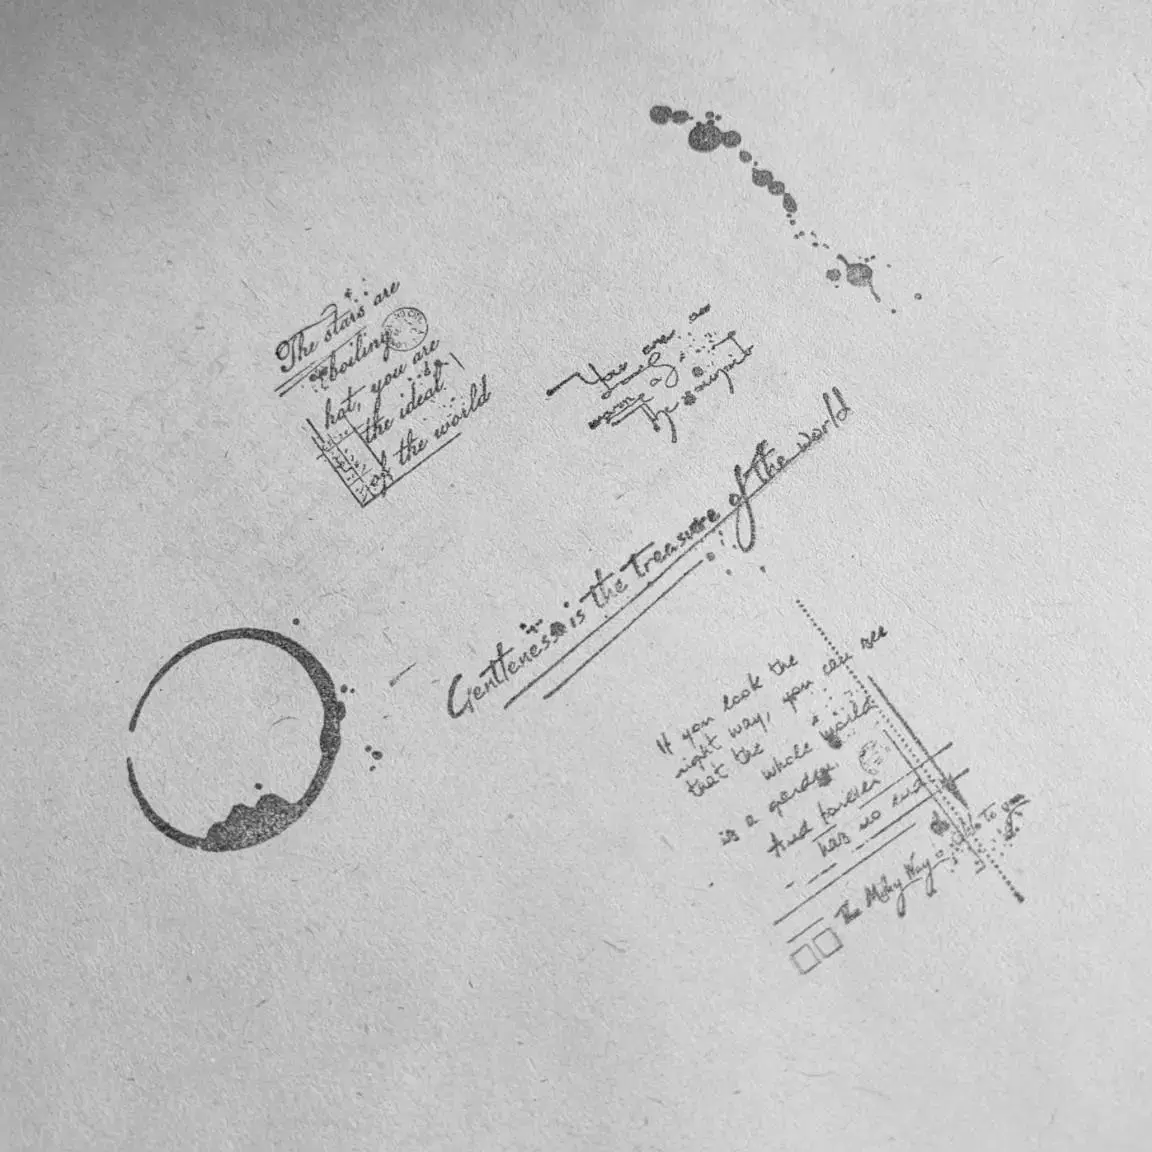 The stars are
boiling
hot, you are
the ideal
of the world
You are as
as
warm as the
the
Gentleness is the treasure of the world
If you look the
right way, you can see
that the whole world
is a garden
And forever
has no end
The Milky Way
To you